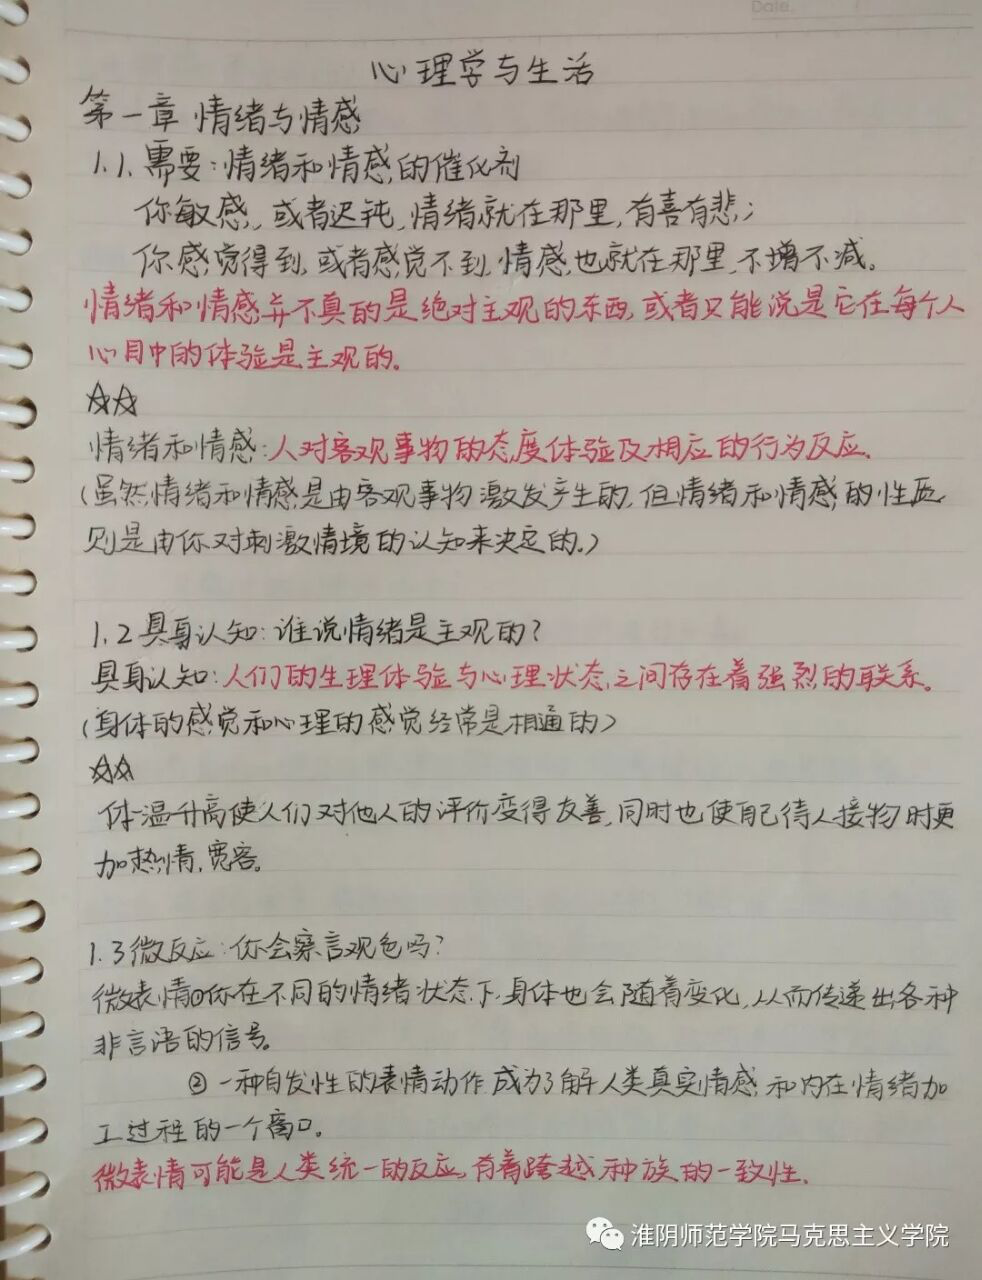 Date.
心理学与生活
第一章 情绪与情感
1.1.需要:情绪和情感的催化剂
你敏感,或者迟钝,情绪就在那里,有喜有悲;
你感觉得到,或者感觉不到,情感也就在那里,不增不减。
情绪和情感并不真的是绝对主观的东西,或者只能说是它在每个人
心目中的体验是主观的。
☆☆
情绪和情感:人对客观事物的态度体验及相应的行为反应.
(虽然情绪和情感是由客观事物激发产生的,但情绪和情感的性质
则是由你对刺激情境的认知来决定的.)
1.2具身认知:谁说情绪是主观的?
具身认知:人们的生理体验与心理状态之间存在着强烈的联系。
(身体的感觉和心理的感觉经常是相通的)
☆☆
体温升高使人们对他人的评价变得友善,同时也使自己待人接物时更
加热情,宽容。
1.3微反应:你会察言观色吗?
微表情①你在不同的情绪状态下,身体也会随着变化,从而传递出各种
非言语的信号。
② 一种自发性的表情动作成为了解人类真实情感和内在情绪加
工过程的一个窗口。
微表情可能是人类统一的反应,有着跨越种族的一致性.
淮阴师范学院马克思主义学院